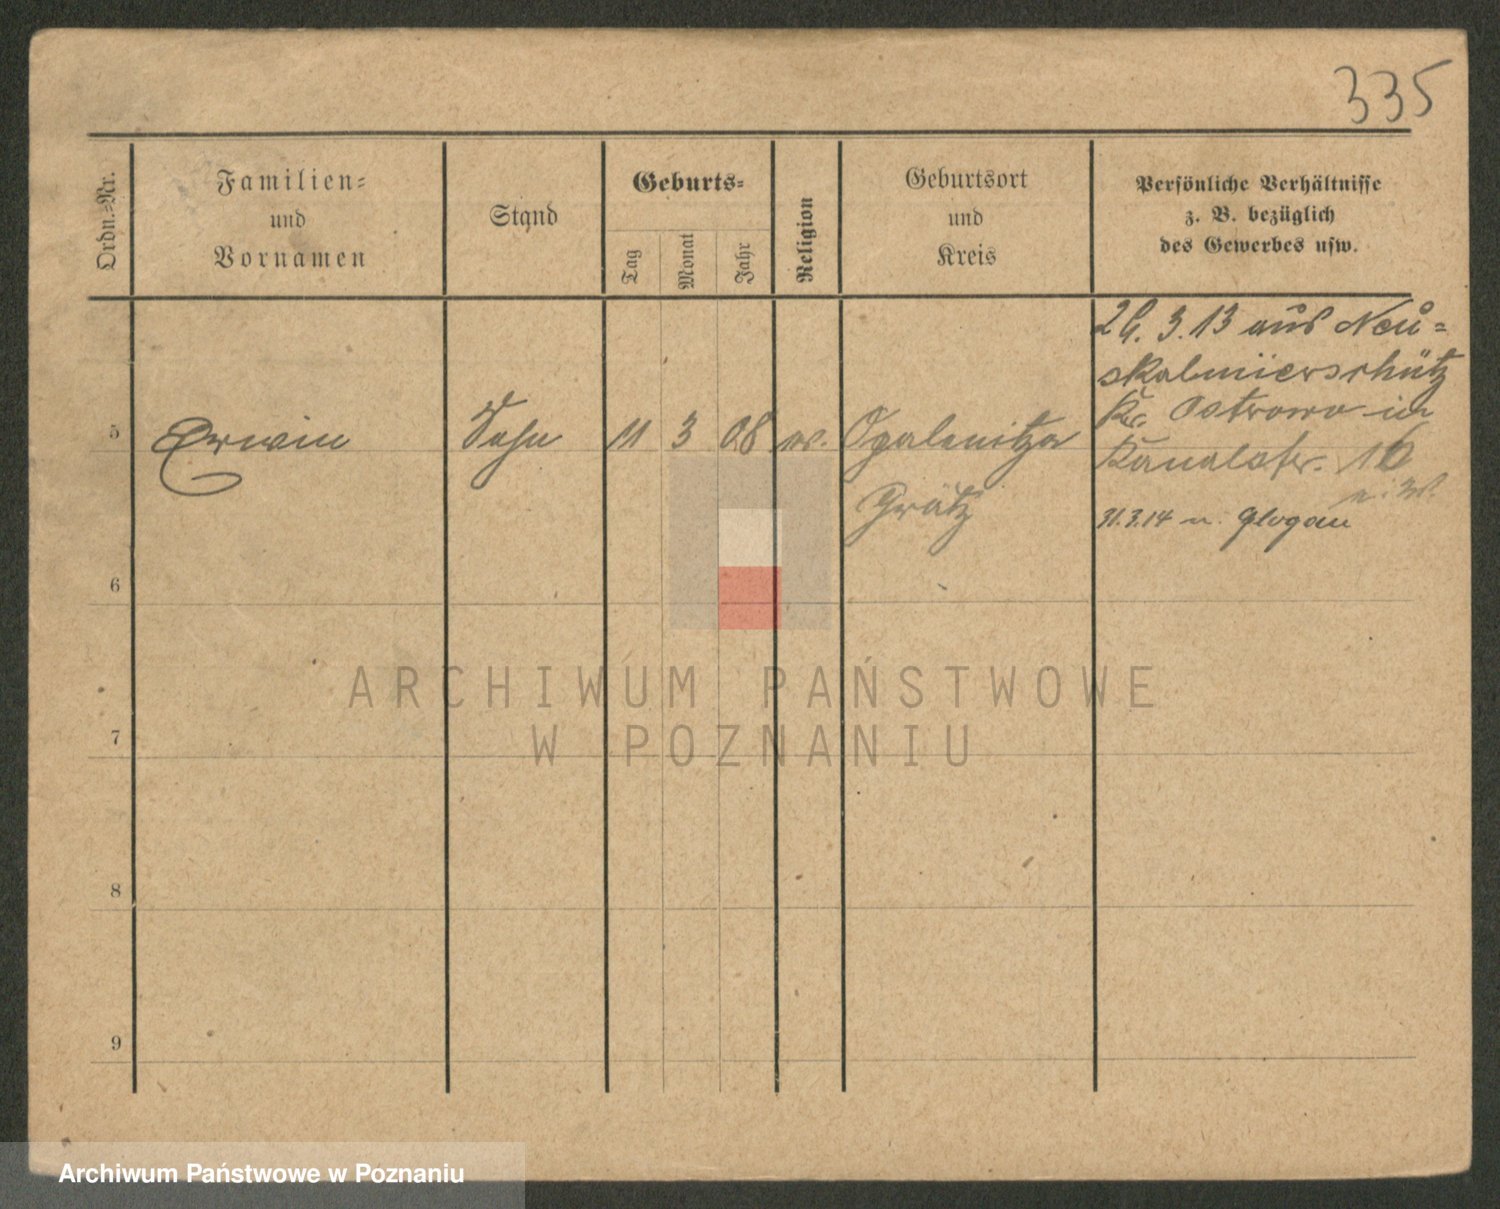 335
Ordn.-Nr.
Familien-
und
Vornamen
Stand
Geburts-
Tag
Monat
Jahr
Religion
Geburtsort
und
Kreis
Persönliche Verhältnisse
z. B. bezüglich
des Gewerbes usw.
26. 3. 13 aus Neu-
skalmierschütz
Kr. Ostrowo in
5 Erwin Sohn 11 3 08 ev. Opalenitza
Kanalstr. 16
Grätz
31.3.14 n. Glogau
6
7
8
9
ARCHIWUM PAŃSTWOWE
W POZNANIU
Archiwum Państwowe w Poznaniu